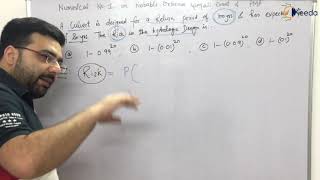 Numerical No-1 on Probable Maximum
A Culvert is designed for a Return period of 100 yrs & has expected
of 20 yrs. The Risk in the hydrologic Design is
(a) 1 - 0.99^20 (b) 1 - (0.1)^20 (c) 1 - (0.09)^20 (d) 1 - (0.01)^20
Risk = P(
eeda